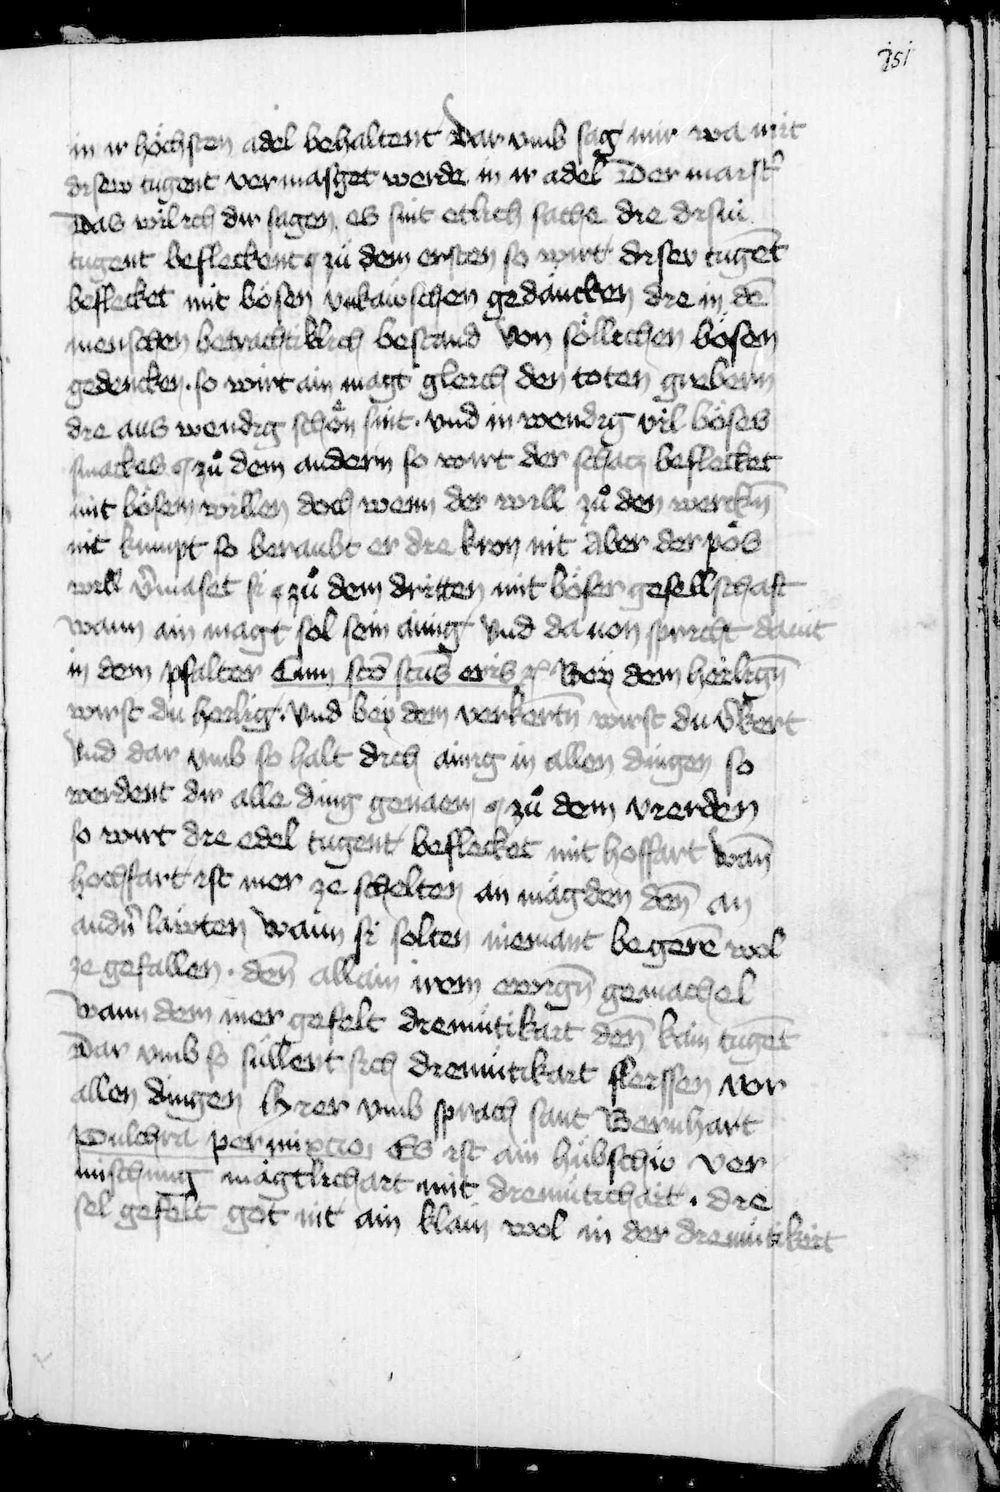 151
in ir höchsten adel behaltent Dar vmb sag mir wa mit
disew tugent vermasget werde in ir adel Der maist̾
Das wil ich dir sagen es sint etlich sache die disiu
tugent befleckent ¶ zů dem ersten so wirt disev tugēt
beflecket mit bösen vnkaẅschen gedäncken die in dē
menschen betrachtiklich bestand Von söllichen bösen
gedencken · so wirt ain magt gleich den toten grebern
die aus wendig schön sint · vnd in wendig vil böses
smackes ¶ zů dem andern so wirt der schacz beflecket
mit bösem willen doch wenn der will zů den werckn̄
nit kumpt so beraubt er die kron nit Aber der pös
will v̄maset si ¶ zů dem dritten mit böser gesellschaft
wann ain magt sol sein ainig Vnd da uon spricht dauit
in dem psalter Cum scō scūs eris ⁊c̄ Bey dem heilign̄
wirst du heilig · Vnd bey dem verkertn̄ wirst du v̄kert
Vnd dar vmb so halt dich ainig in allen dingen so
werdent dir alle ding genaem ¶ zů dem vierden
so wirt die edel tugent beflecket mit hoffart wan̄
hochfart ist mer ze schelten an mägden den̄ an
andn̄ läwten Wann si solten niemant begerē wol
ze gefallen · den̄ allain irem ewign̄ gemachel
Wann dem mer gefelt diemütikait den̄ kain tugēt
Dar vmb so süllent sich diemütikait fleissen vor
allen dingen Hier vmb sprach sant Bernhart
Pulchra permixcio Es ist ain hübschiv ver
mischung mägtlichait mit diemütichait · die
sel gefelt got nit ain klain wol in der diemütikeit